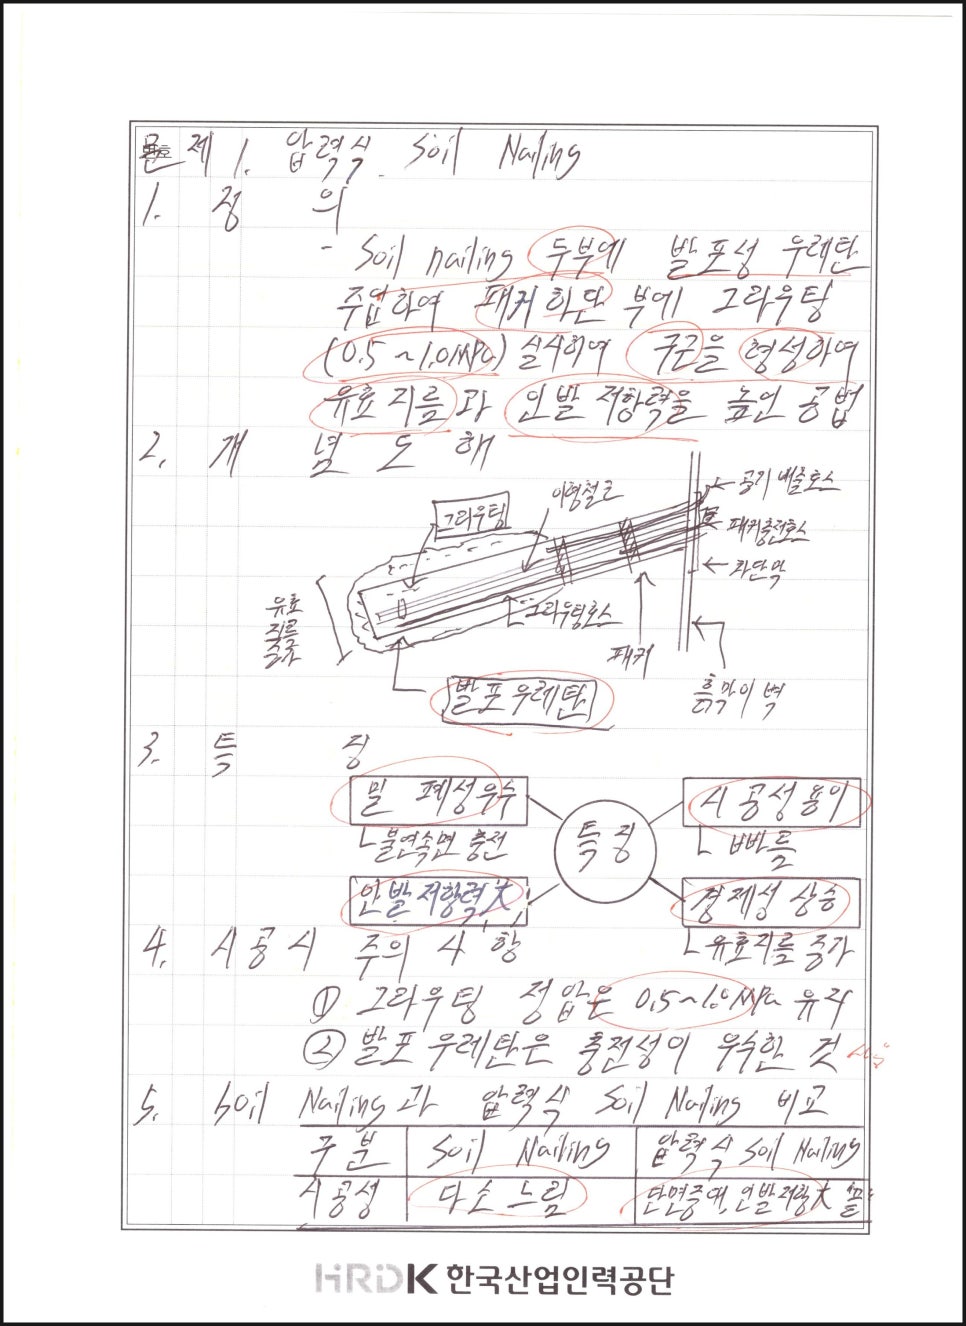 문제 1. 압력식 Soil Nailing
1. 정 의
- Soil nailing 두부에 발포성 우레탄
주입하여 패커 하단 부에 그라우팅
(0.5 ~ 1.0MPa) 실시하여 구근을 형성하여
유효 지름과 인발 저항력을 높인 공법
2. 개 념 도 해
그라우팅
이형철근
공기 배출호스
패커충전호스
차단막
유효
지름
증가
그라우팅호스
패커
발포 우레탄
흙막이 벽
3. 특 징
밀 폐성우수
시공성용이
특징
└ 불연속면 충전
└ 빠름
인발저항력大
경제성 상승
└ 유효지름 증가
4. 시공시 주의 사항
① 그라우팅 정압은 0.5~1.0MPa 유지
② 발포 우레탄은 충전성이 우수한 것
5. Soil Nailing과 압력식 Soil Nailing 비교
구분
Soil Nailing
압력식 Soil Nailing
시공성
다소 느림
단면증대, 인발저항大 "끝"
HRDK 한국산업인력공단